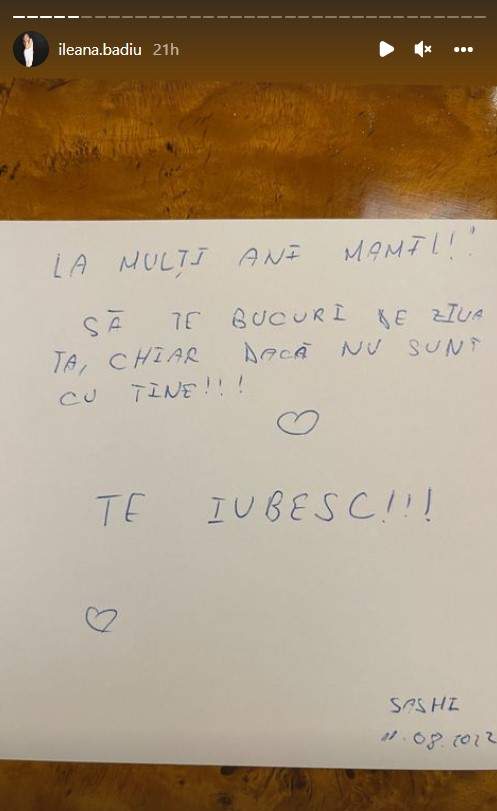 ileana.badiu 21h
LA MULȚI ANI MAMI!!!
SĂ TE BUCURI DE ZIUA
TA, CHIAR DACĂ NU SUNT
CU TINE!!!
TE IUBESC!!!
SASHI
11.08.2022